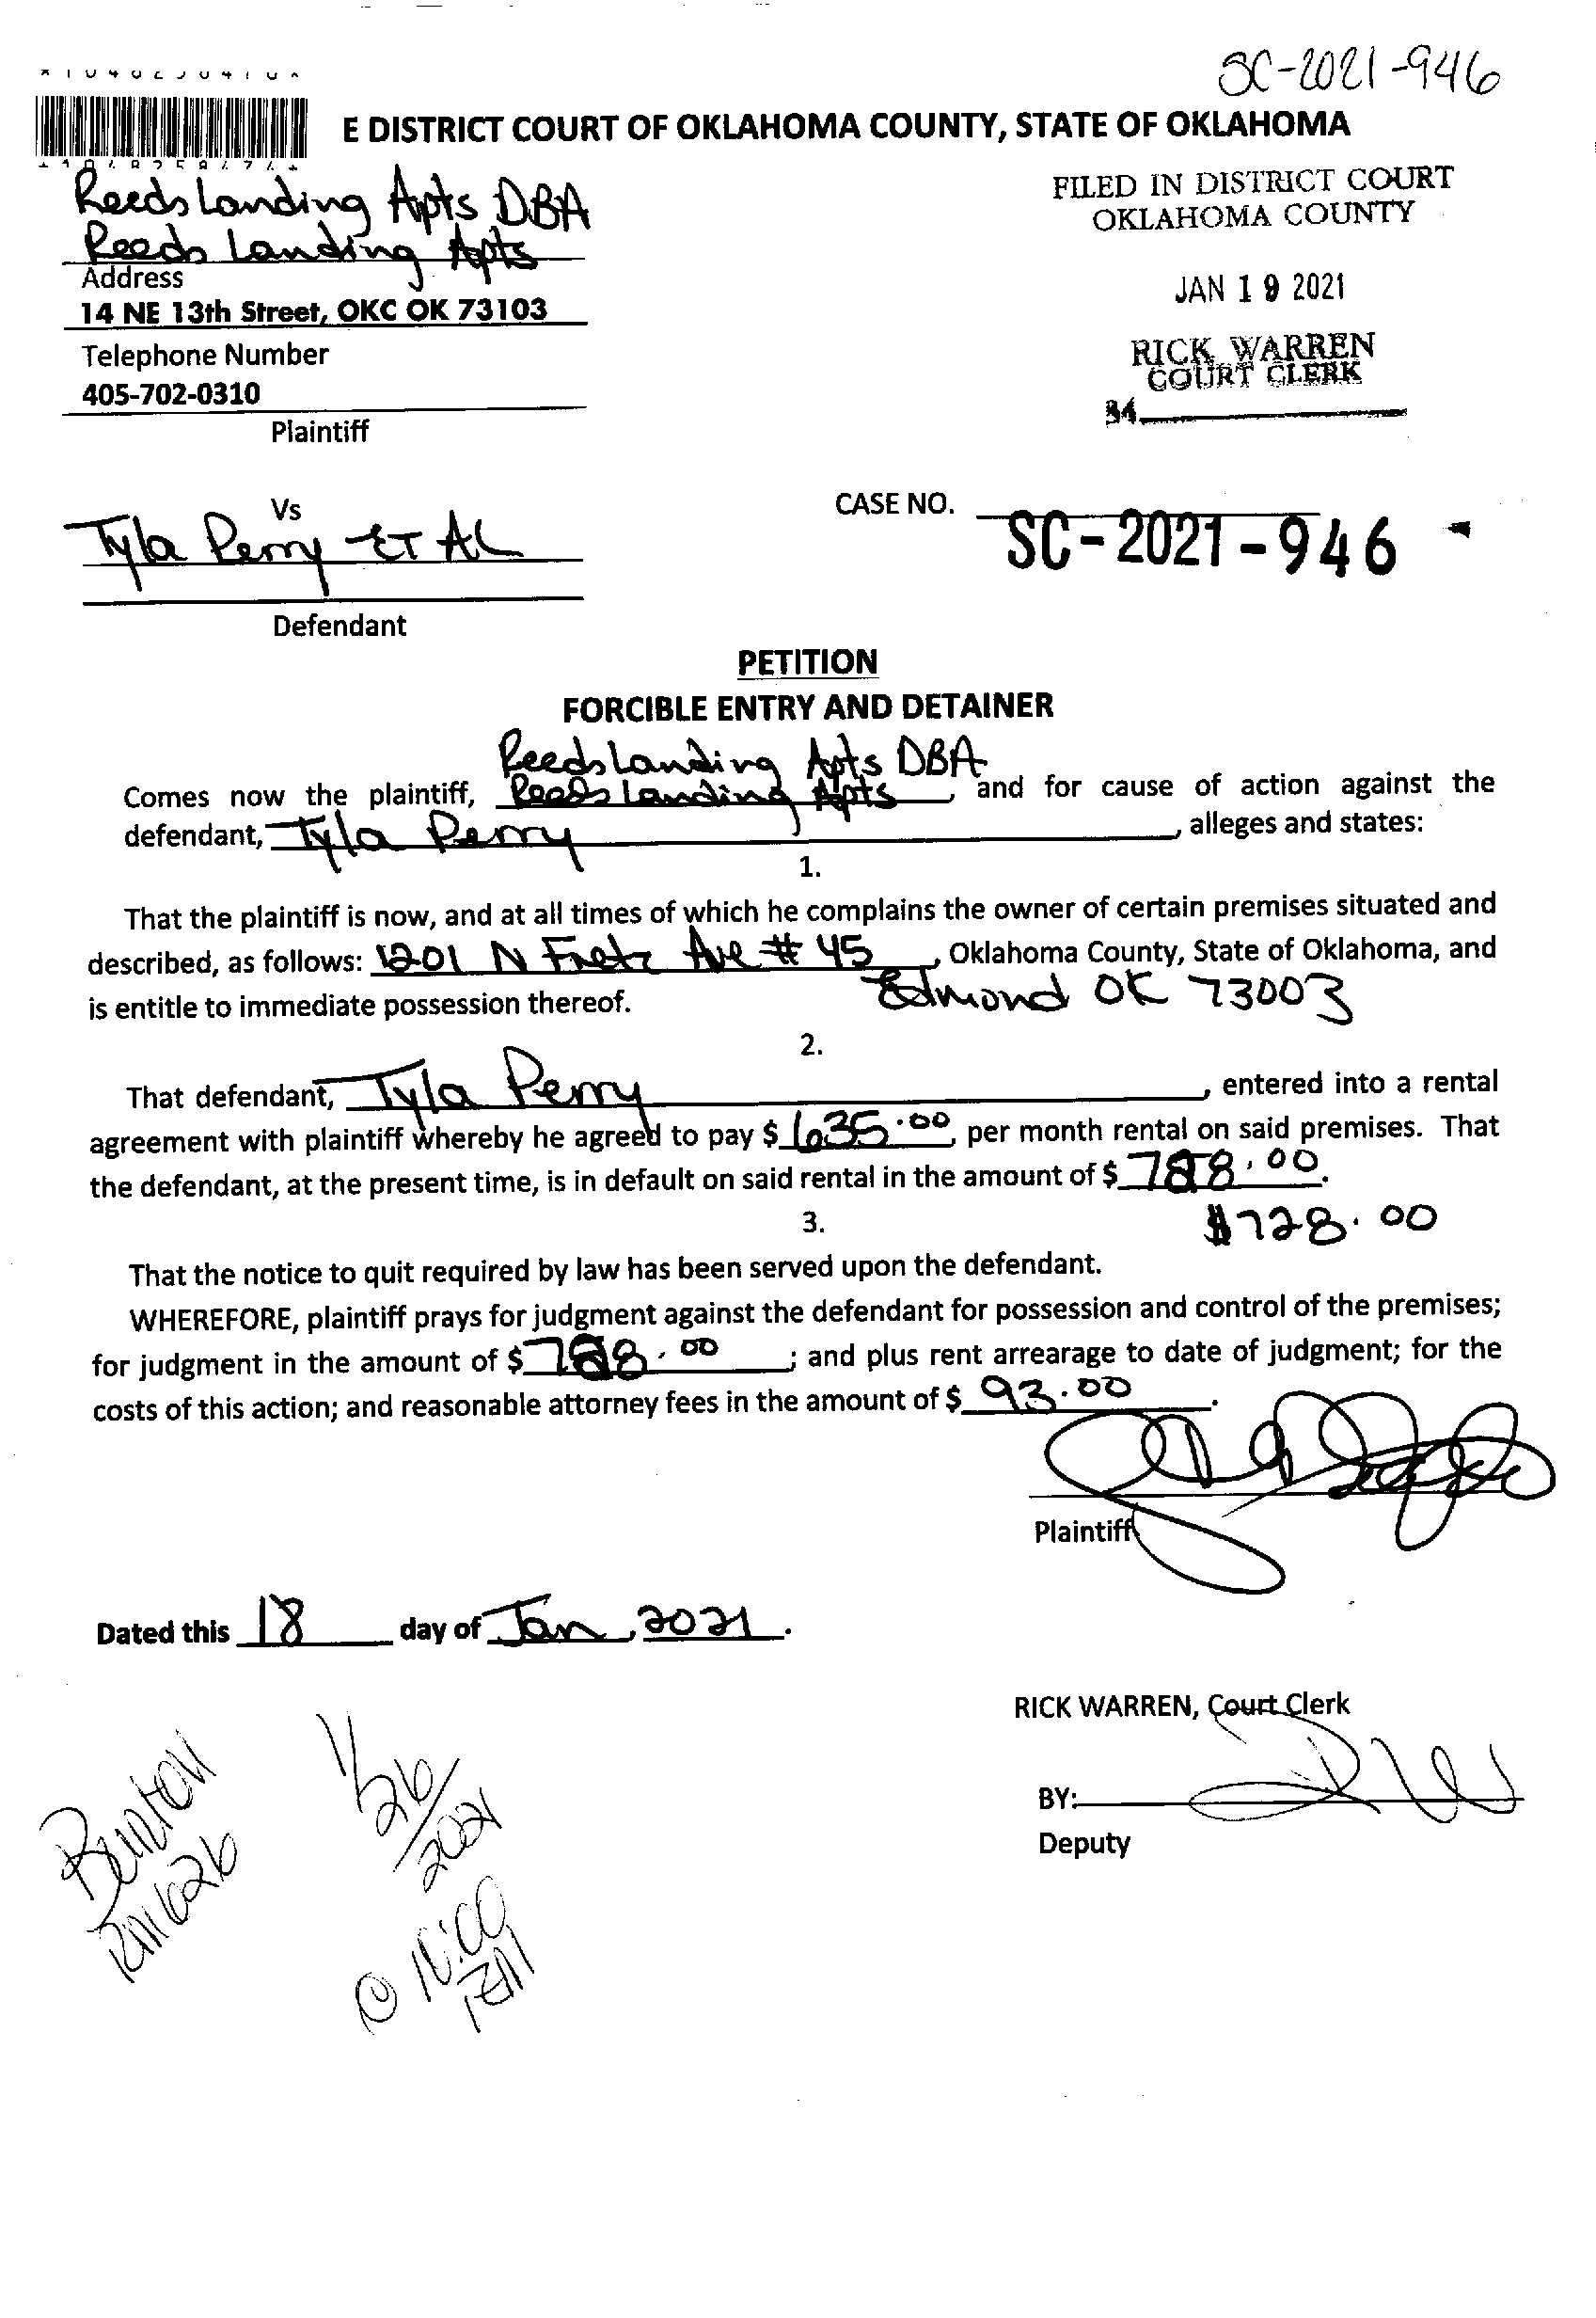 SC-2021-946
E DISTRICT COURT OF OKLAHOMA COUNTY, STATE OF OKLAHOMA
Reeds Landing Apts DBA
Reeds Landing Apts
Address
14 NE 13th Street, OKC OK 73103
Telephone Number
405-702-0310
Plaintiff
FILED IN DISTRICT COURT
OKLAHOMA COUNTY
JAN 19 2021
RICK WARREN
COURT CLERK
Vs
Tyla Perry ET AL
Defendant
CASE NO.
SC-2021-946
PETITION
FORCIBLE ENTRY AND DETAINER
Reeds Landing Apts DBA
Comes now the plaintiff, Reeds Landing Apts, and for cause of action against the
defendant, Tyla Perry, alleges and states:
1.
That the plaintiff is now, and at all times of which he complains the owner of certain premises situated and
described, as follows: 1201 N Fretz Ave # 45, Oklahoma County, State of Oklahoma, and
is entitle to immediate possession thereof. Edmond OK 73003
2.
That defendant, Tyla Perry, entered into a rental
agreement with plaintiff whereby he agreed to pay $ 635.00, per month rental on said premises. That
the defendant, at the present time, is in default on said rental in the amount of $ 728.00.
3.
$728.00
That the notice to quit required by law has been served upon the defendant.
WHEREFORE, plaintiff prays for judgment against the defendant for possession and control of the premises;
for judgment in the amount of $ 728.00; and plus rent arrearage to date of judgment; for the
costs of this action; and reasonable attorney fees in the amount of $ 93.00.
Plaintiff
Dated this 18 day of Jan, 2021.
RICK WARREN, Court Clerk
BY:
Deputy
1/26/2021